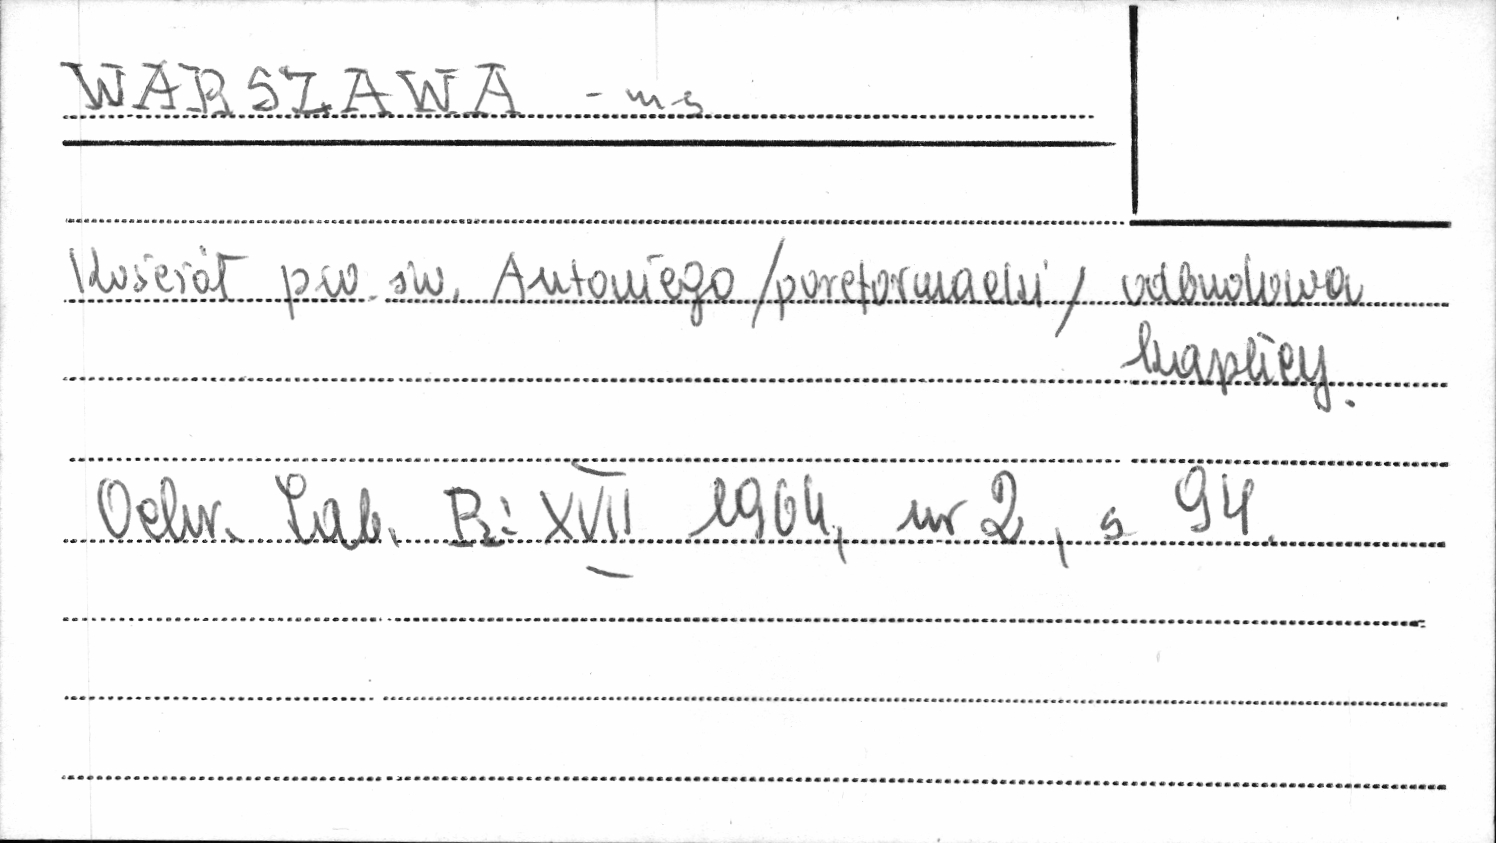 WARSZAWA - m s
Kościół pw. św. Antoniego /poreformacki/ odbudowa
kaplicy.
Ochr. Zab. R: XVII 1964, nr 2, s 94.